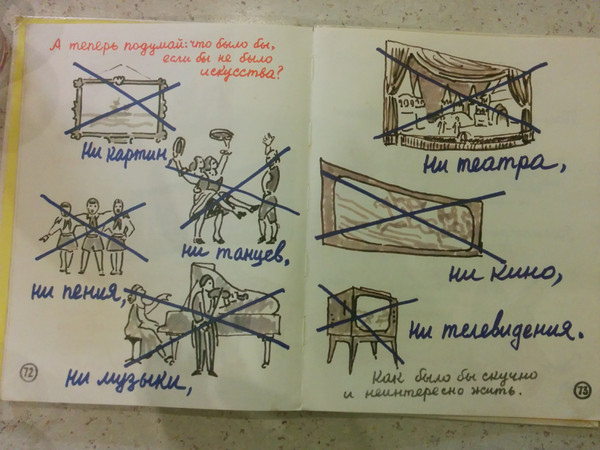 А теперь подумай: что было бы,
если бы не было
искусства?
ни картин
ни танцев,
ни пения,
ни музыки,
72
ни театра,
ни кино,
ни телевидения.
Как было бы скучно
и неинтересно жить.
73